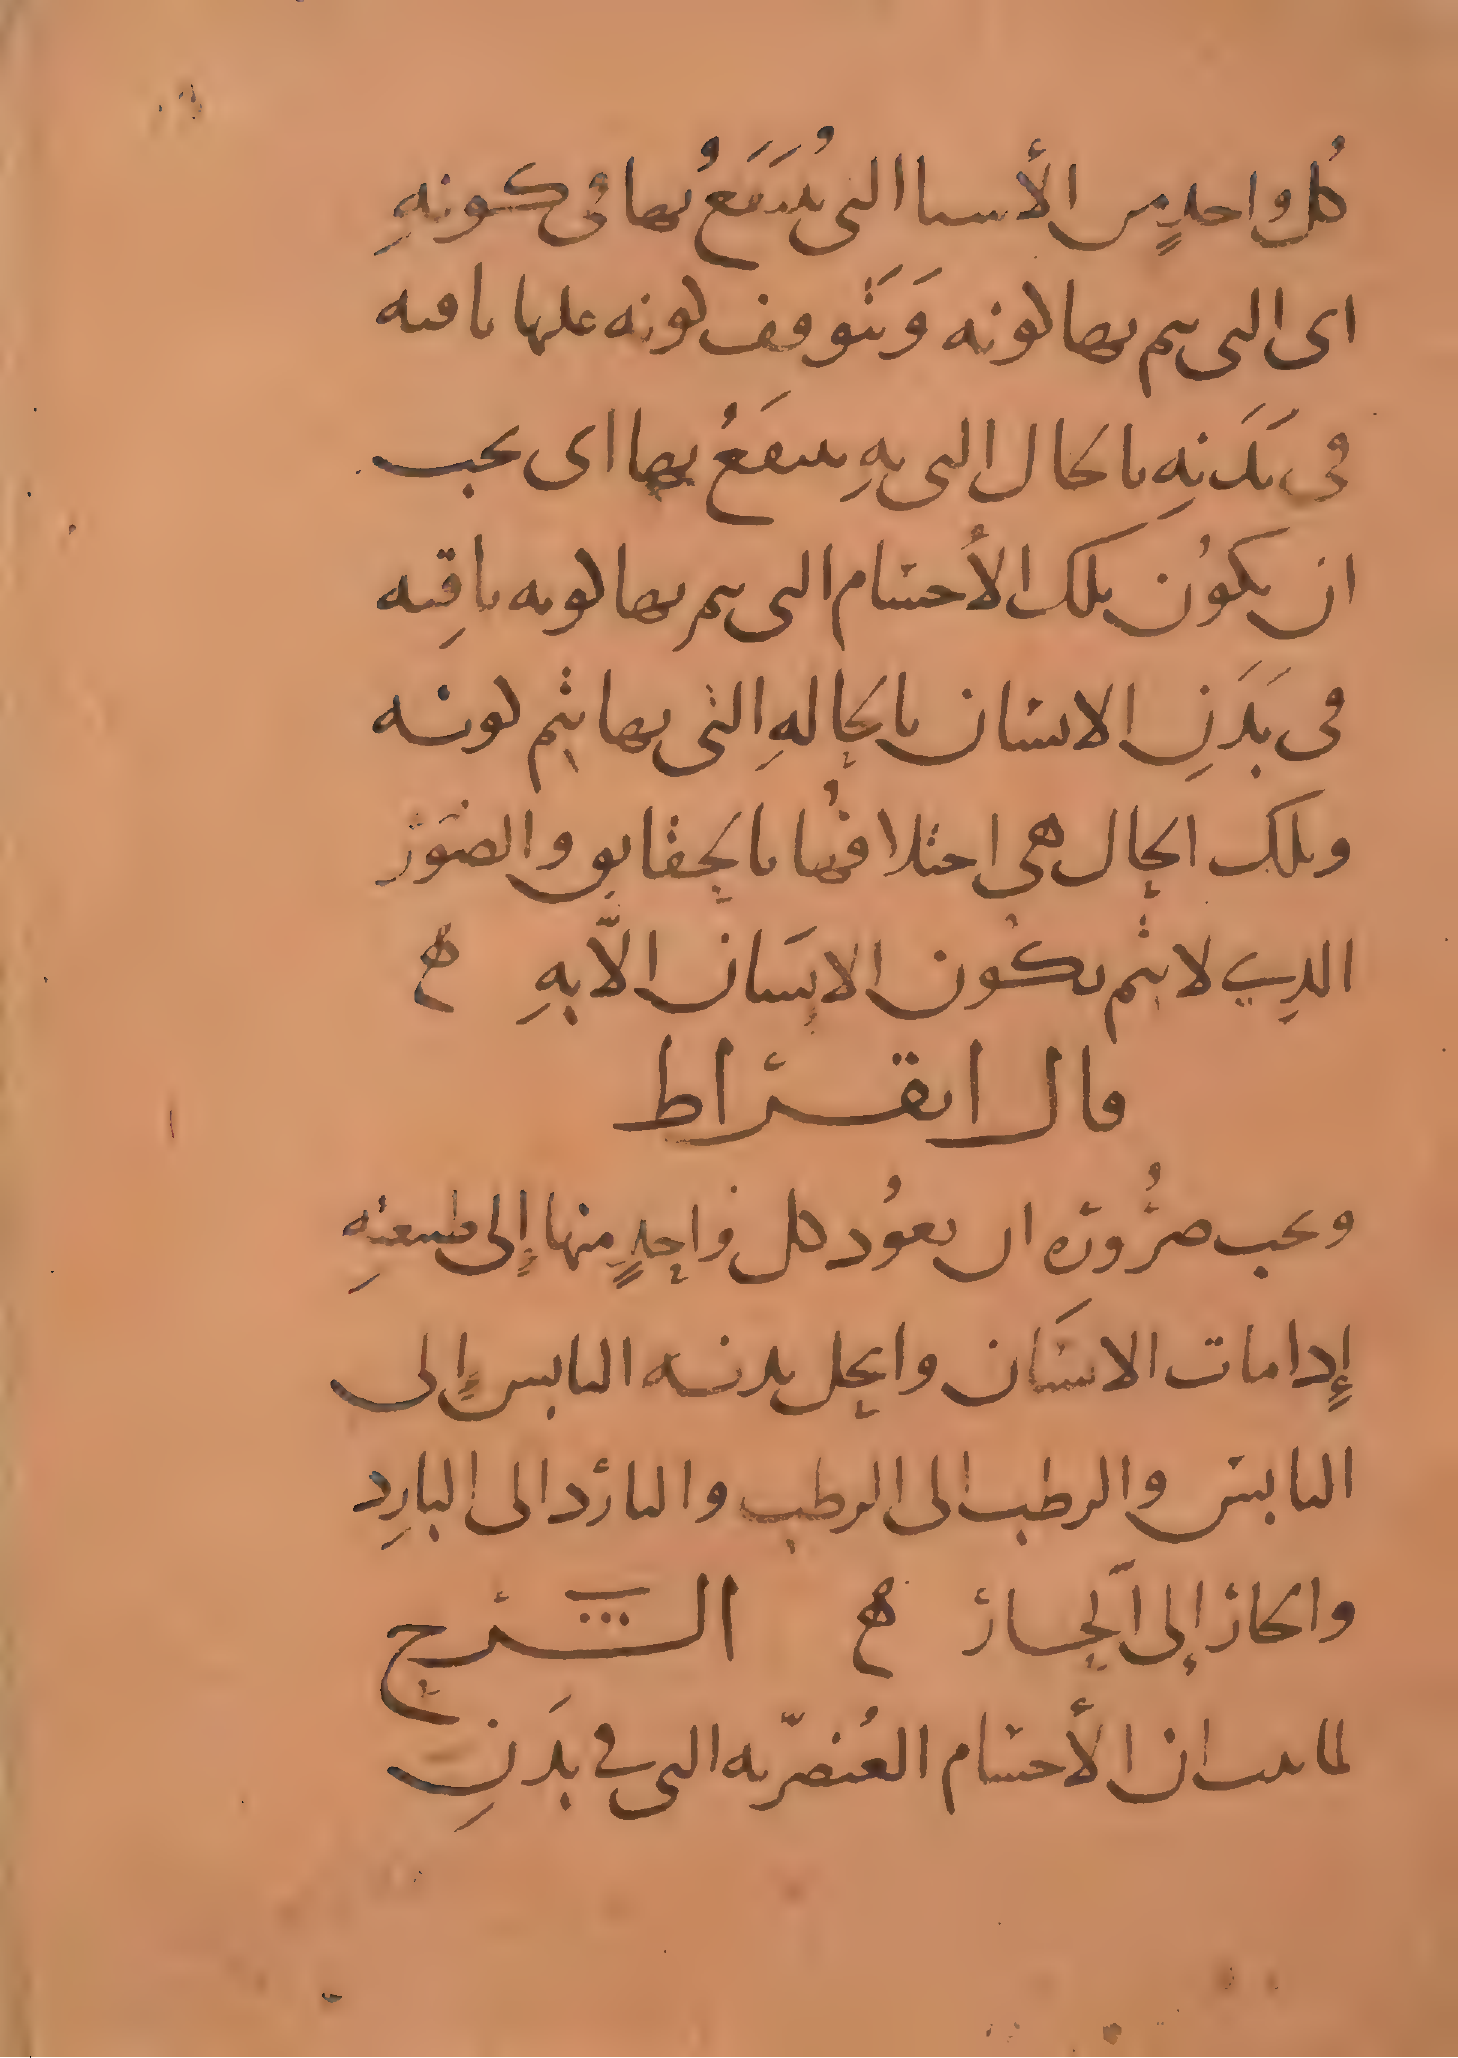 كُل واحدٍ من الأشيا التي يُنتَفَعُ بها في كونهِ
اى التي يتم بها كونه وَيَتوقف كونه عليها باقيه
في بَدَنِهِ بالحال التي بهِ ينتفَعُ بها اى يجب
ان يكوُن تلك الأجسَام التي يتم بها كونه باقِيه
في بَدَنِ الانسان بالحَالهِ التي بها يتم كونه
وتلك الحال هي اختلافُها بالحَقايق والصوَر
الذي لا يتم تكوُن الانسَان الاّ بهِ هـ
قال ابقراط
ويجب ضرُورة ان يعوُد كل واحدٍ منها إلى طبيعتهِ
إدا مات الانسَان وانحل بدنه اليابس إلى
اليابس والرطب الى الرطب والبارد الى البارِد
والحار إلى الحار هـ الشرح
لما بين ان الأجسام العُنصرّيه التي في بدَنِ